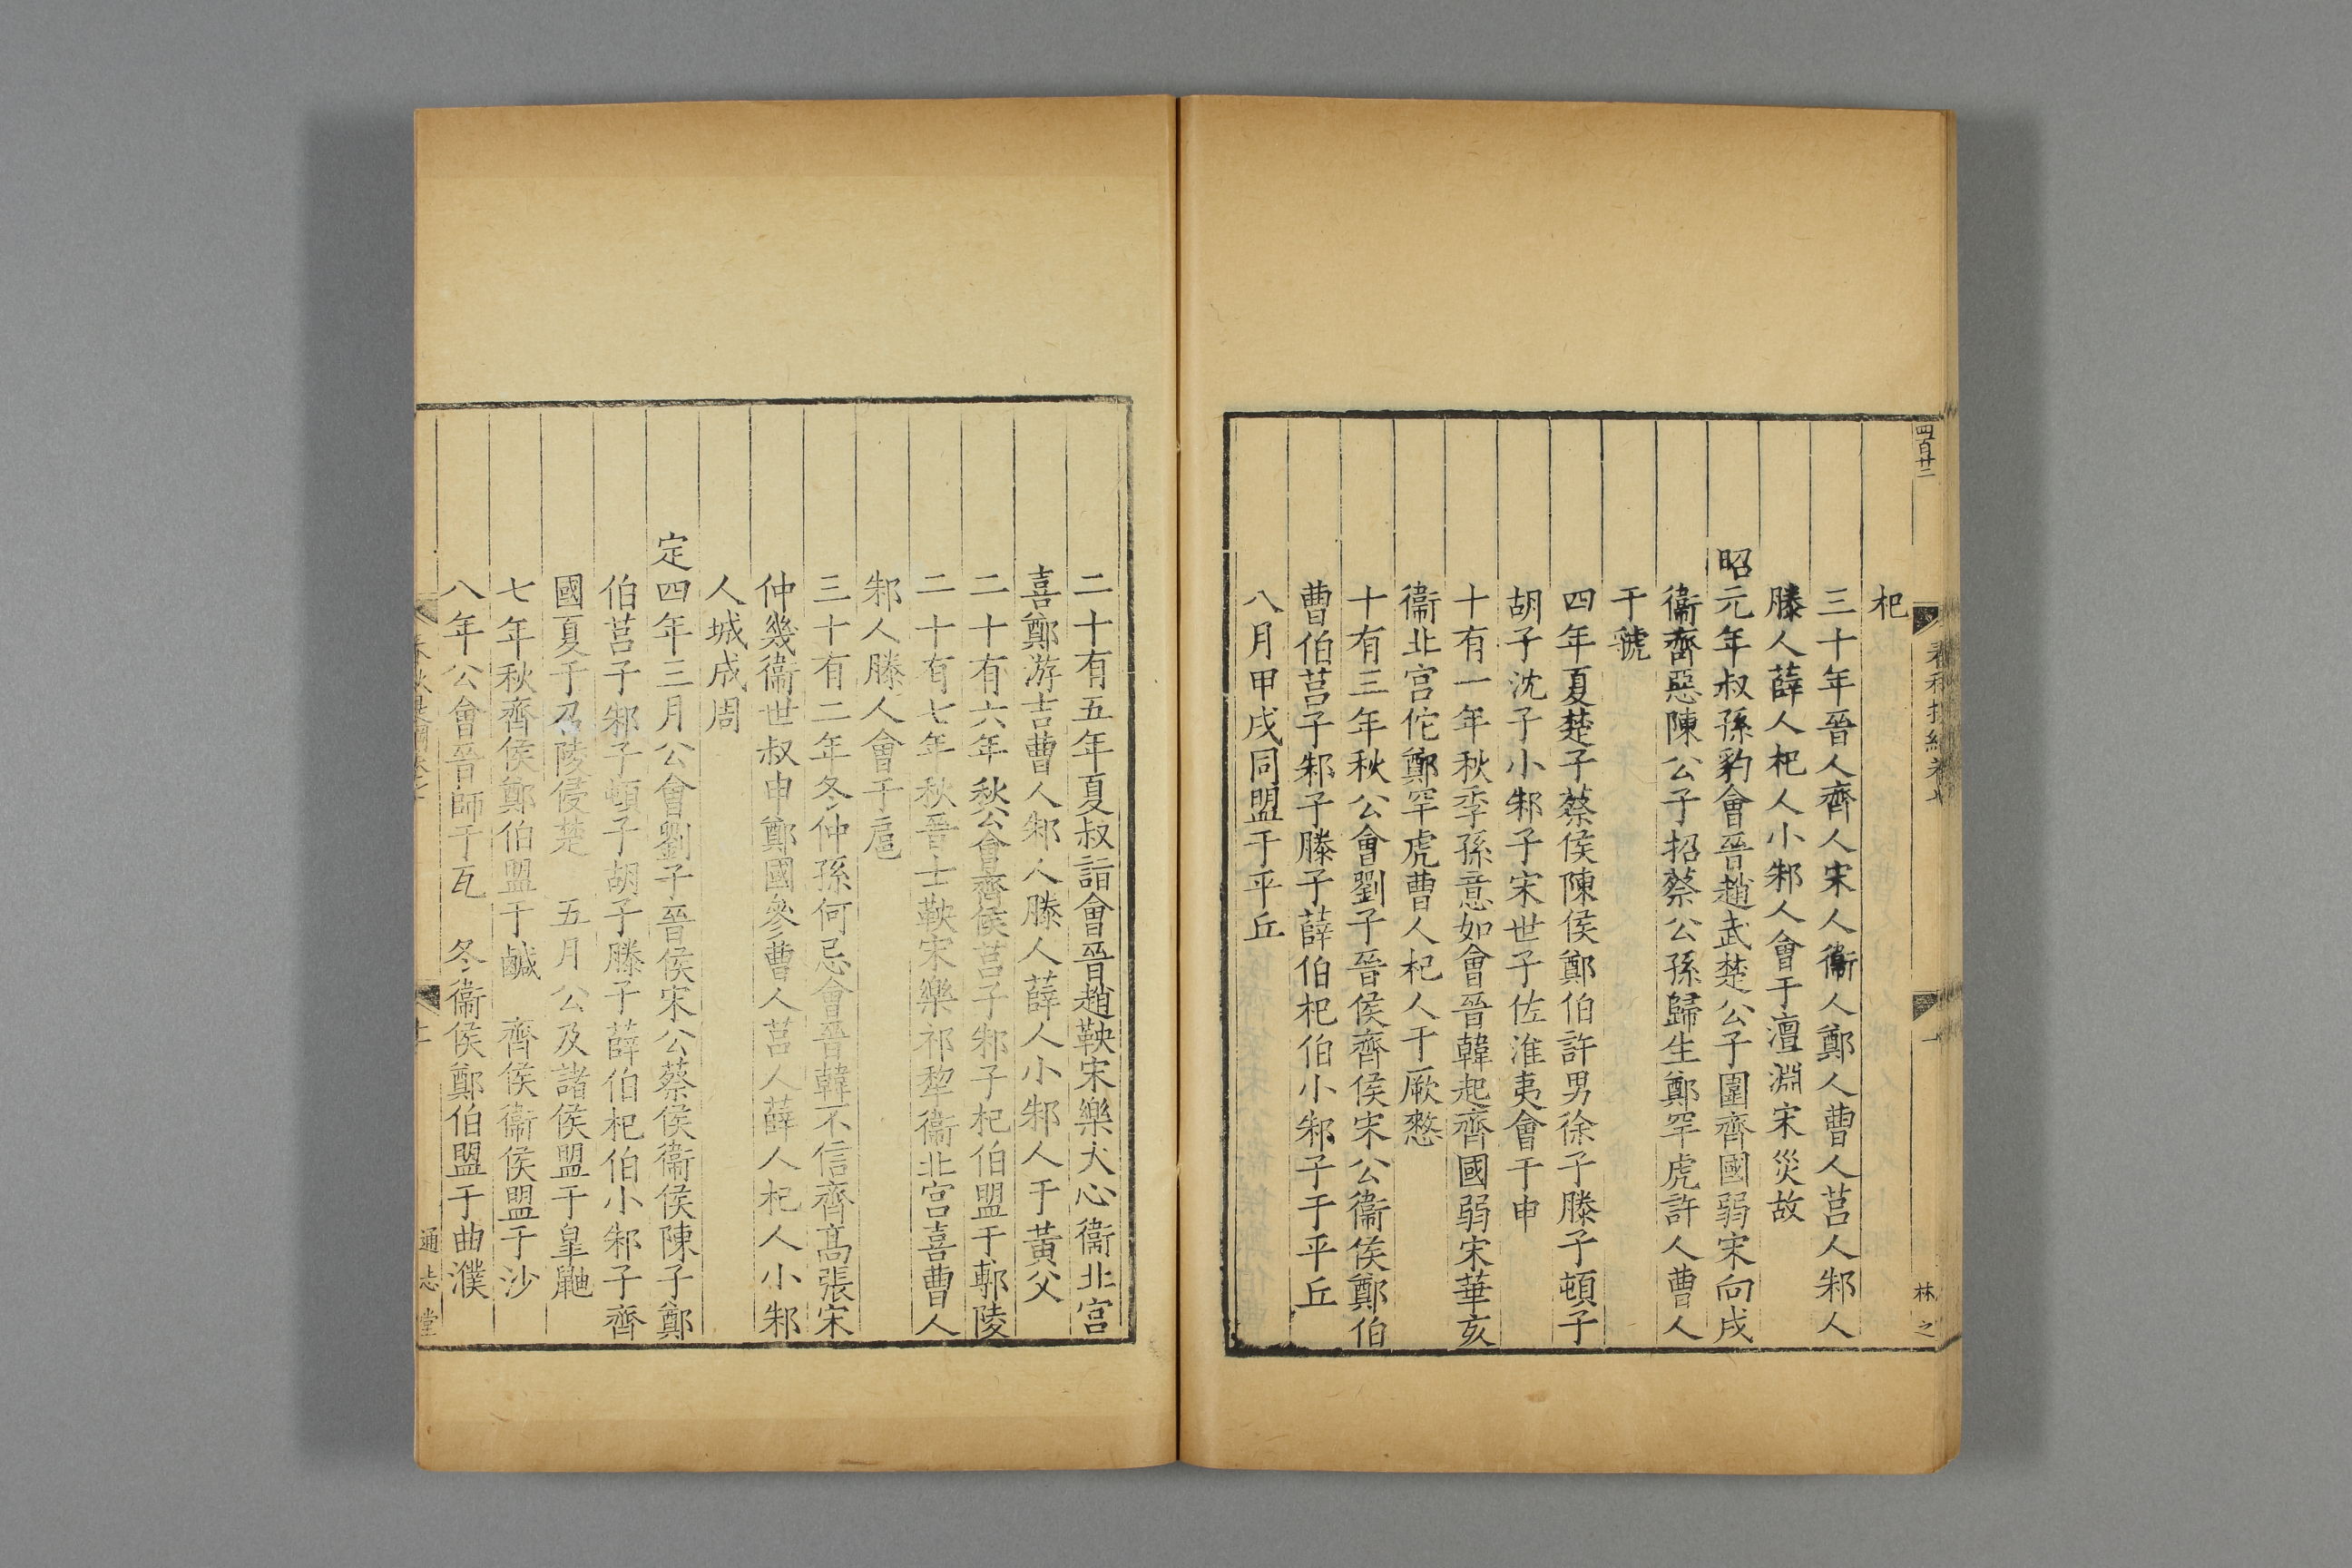 四百廿二
林之
杞
三十年晉人齊人宋人衞人鄭人曹人莒人邾人
滕人薛人杞人小邾人會于澶淵宋災故
昭元年叔孫豹會晉趙武楚公子圍齊國弱宋向戌
衞齊惡陳公子招蔡公孫歸生鄭罕虎許人曹人
于虢
四年夏楚子蔡侯陳侯鄭伯許男徐子滕子頓子
胡子沈子小邾子宋世子佐淮夷會于申
十有一年秋季孫意如會晉韓起齊國弱宋華亥
衞北宫佗鄭罕虎曹人杞人于厥憖
十有三年秋公會劉子晉侯齊侯宋公衞侯鄭伯
曹伯莒子邾子滕子薛伯杞伯小邾子于平丘
八月甲戌同盟于平丘
二十有五年夏叔詣會晉趙鞅宋樂大心衞北宫
喜鄭游吉曹人邾人滕人薛人小邾人于黃父
二十有六年秋公會齊侯莒子邾子杞伯盟于鄟陵
二十有七年秋晉士鞅宋樂祁犂衞北宫喜曹人
邾人滕人會于扈
三十有二年冬仲孫何忌會晉韓不信齊高張宋
仲幾衞世叔申鄭國參曹人莒人薛人杞人小邾
人城成周
定四年三月公會劉子晉侯宋公蔡侯衞侯陳子鄭
伯莒子邾子頓子胡子滕子薛伯杞伯小邾子齊
國夏于召陵侵楚　五月公及諸侯盟于皐鼬
七年秋齊侯鄭伯盟于鹹　齊侯衞侯盟于沙
八年公會晉師于瓦　冬衞侯鄭伯盟于曲濮
通志堂